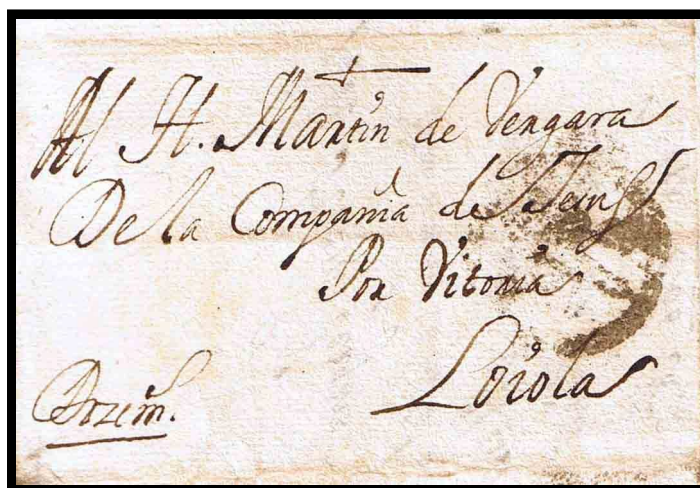 Al H. Martin de Vergara
De la Compañia de Jesus
Por Vitoria
Loiola